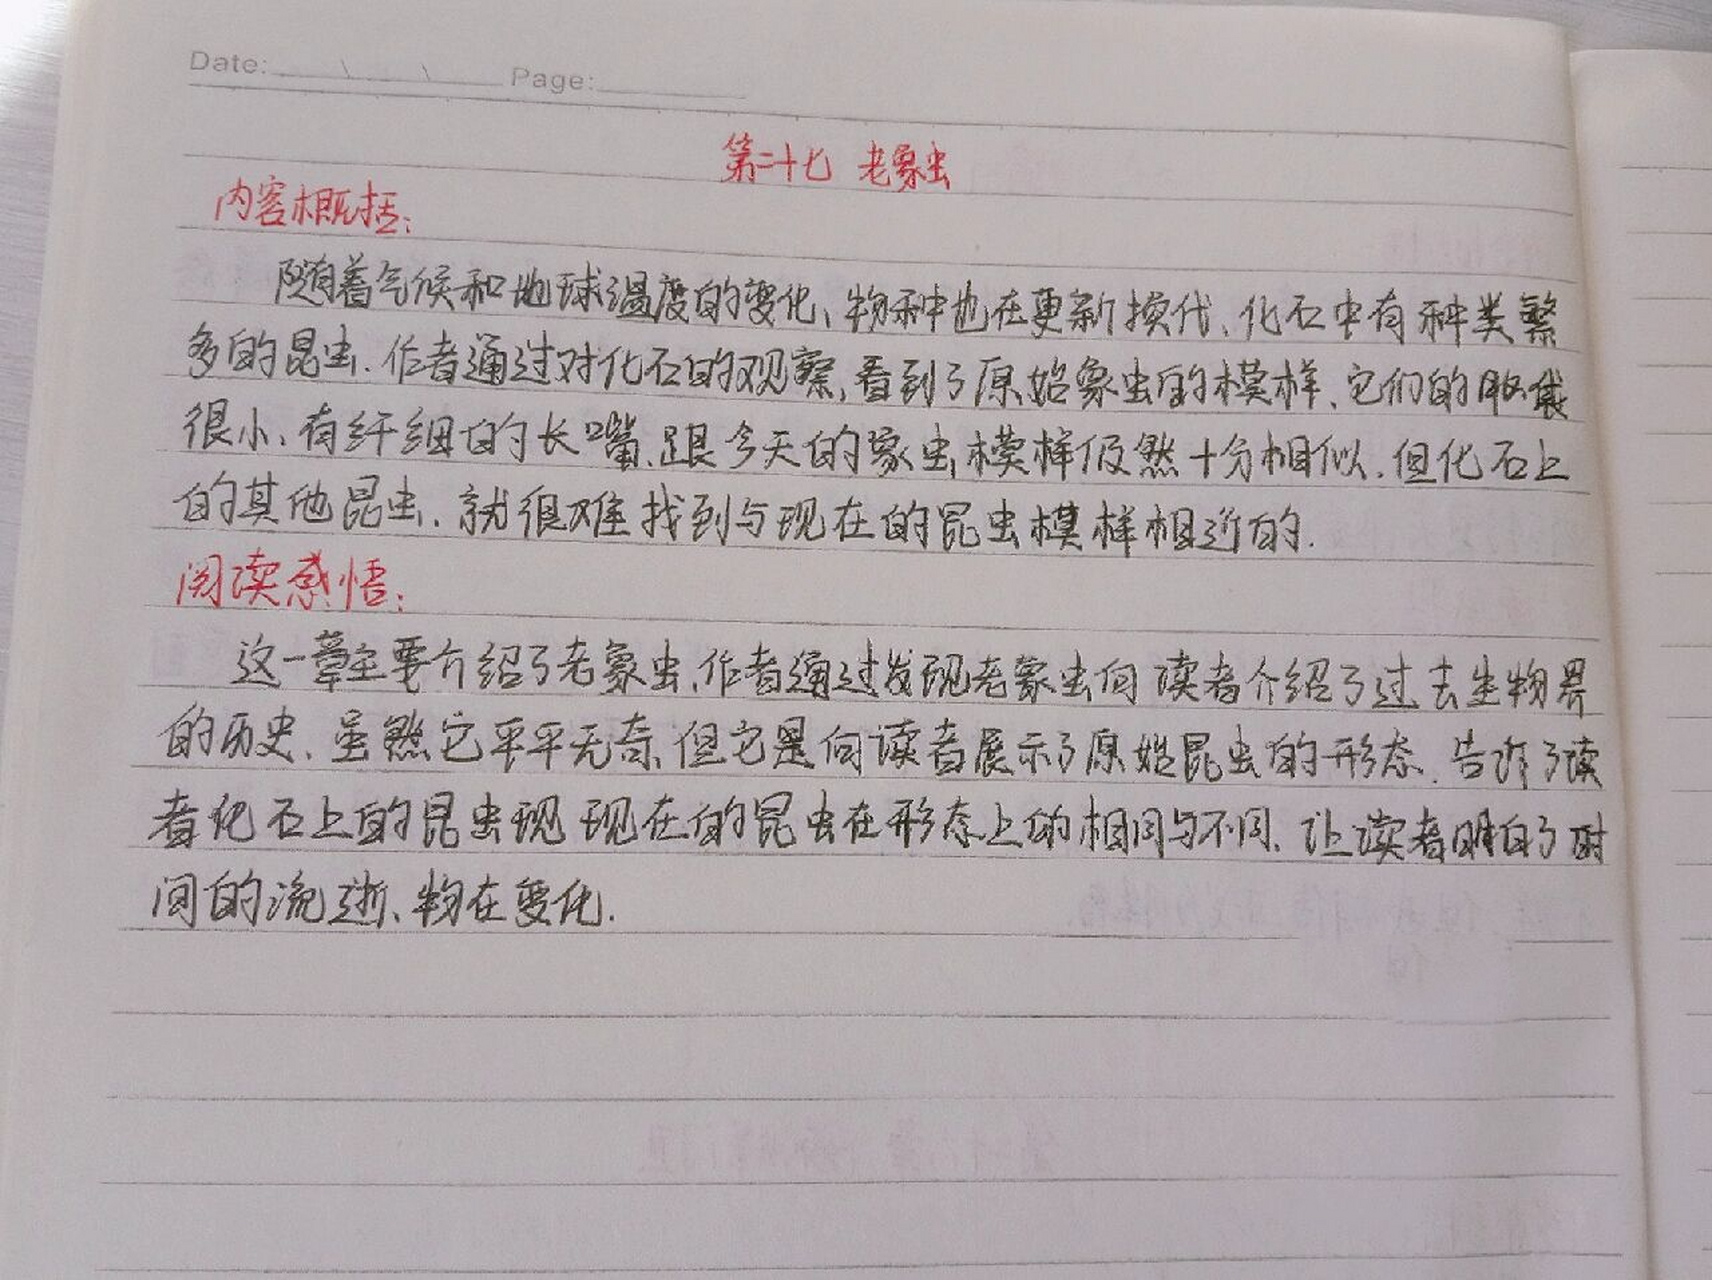 Date: \ \ Page:
第二十七 老象虫
内容概括:
随着气候和地球温度的变化、物种也在更新换代、化石中有种类繁
多的昆虫.作者通过对化石的观察,看到了原始象虫的模样、它们的
很小、有纤细的长嘴、跟今天的象虫模样仍然十分相似.但化石上
的其他昆虫.就很难找到与现在的昆虫模样相近的.
阅读感悟:
这一章主要介绍了老象虫、作者通过发现老象虫向读者介绍了过去生物界
的历史、虽然它平平无奇、但它是向读者展示了原始昆虫的形态.告诉了读
者化石上的昆虫现现在的昆虫在形态上的相同与不同、让读者明白了时
间的流逝、物在变化.